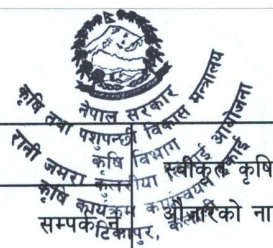 नेपाल सरकार
कृषि तथा पशुपन्छी विकास मन्त्रालय
कृषि विभाग
रानी जमरा कुलरिया सिंचाई आयोजना
कृषि कार्यक्रम कार्यान्वयन इकाई
टिकापुर, कैलाली
स्वीकृत कृषि
सम्पर्क
औजारिको ना